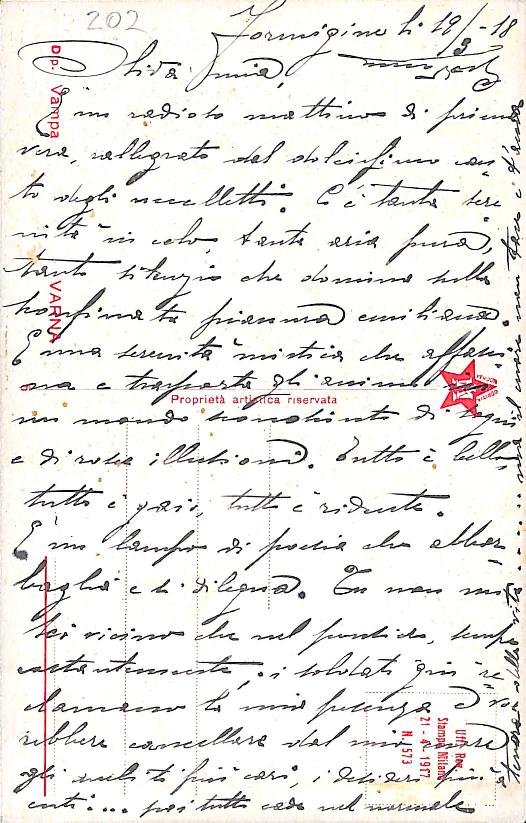 202
Formigine li 19/3-18
Olida mia,
È un radioso mattino di prima
vera, rallegrato dal dolcissimo can
to degli uccelletti. C'è tanta sere
nità in cielo, tanta aria pura,
tanto silenzio che domina sulla
sconfinata pianura emiliana.
È una serenità mistica che affasci
na e trasporta gli animi in
un mondo di sogni
e di rosee illusioni. Tutto è bello,
tutto è gaio, tutto è ridente.
È un lampo di poesia che abbar
baglia e si dilegua. Tu non mi
sei vicino che nel pensiero, tempo
i soldati già re
clamano la mia presenza e vor
rebbero cancellare dal mio cuore
gli aneliti più cari, i desideri più
poi tutto cade nel normale
Dip. Vampa
VARNA
Proprietà artistica riservata
Uff. Rev.
Stampa Milano
21-4-1917
N. 573